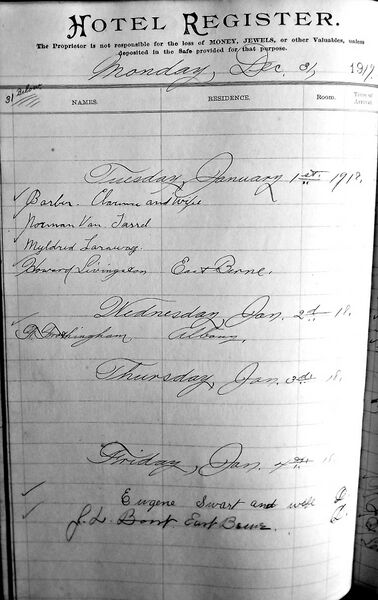 HOTEL REGISTER.
The Proprietor is not responsible for the loss of MONEY, JEWELS, or other Valuables, unless
deposited in the Safe provided for that purpose.
Monday, Dec. 31, 1917.
31 Below
NAMES. RESIDENCE. Room. Time of Arrival.
Tuesday, January 1st 1918.
Barber. Clarence and Wife
Norman Van Tassel
Myldred Laraway.
Howard Livingston East Berne.
Wednesday, Jan. 2d 18.
Frothingham Albany.
Thursday, Jan. 3d 18.
Friday, Jan. 4th 18.
Eugene Swart and wife D.
J. L. Boost East Berne. D.